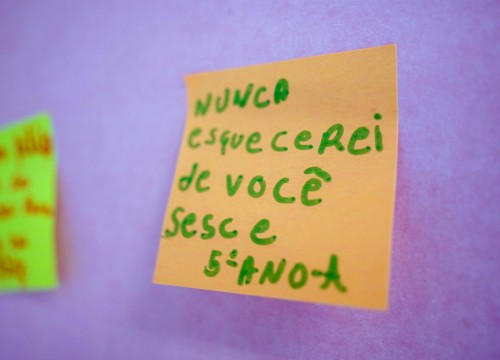 NUNCA
esquecerei
de você
Sesc e
5º ANO-A